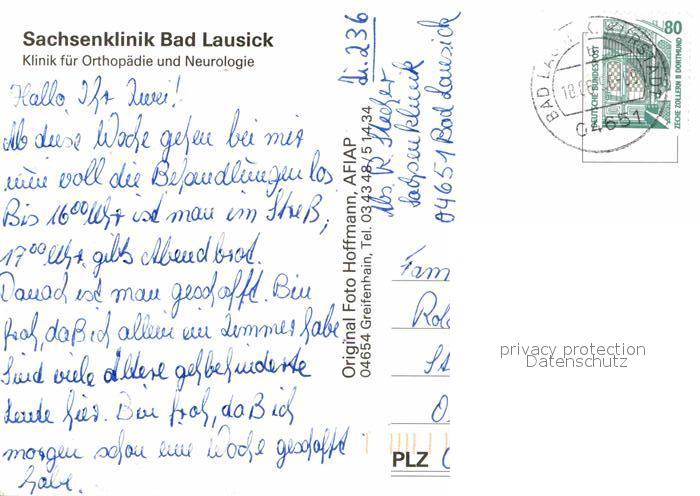 Sachsenklinik Bad Lausick
Klinik für Orthopädie und Neurologie
Hallo, Ihr Zwei!
Ab diese Woche gehen bei mir
nun voll die Behandlungen los
Bis 16⁰⁰ Uhr ist man im Streß,
17⁰⁰ Uhr gibts Abendbrot.
Danach ist man geschafft. Bin
froh, daß ich allein ein Zimmer habe
Sind viele ältere gehbehinderte
Leute hier. Bin froh, daß ich
morgen schon eine Woche geschafft
habe.
Original Foto Hoffmann, AFIAP
04654 Greifenhain, Tel. 03 43 48 / 5 14 34
Abs. R.
Sachsenklinik
04651 Bad Lausick
236
Fam
PLZ
80
DEUTSCHE BUNDESPOST
ZECHE ZOLLERN II DORTMUND
BAD LAUSICK
04651
privacy protection
Datenschutz